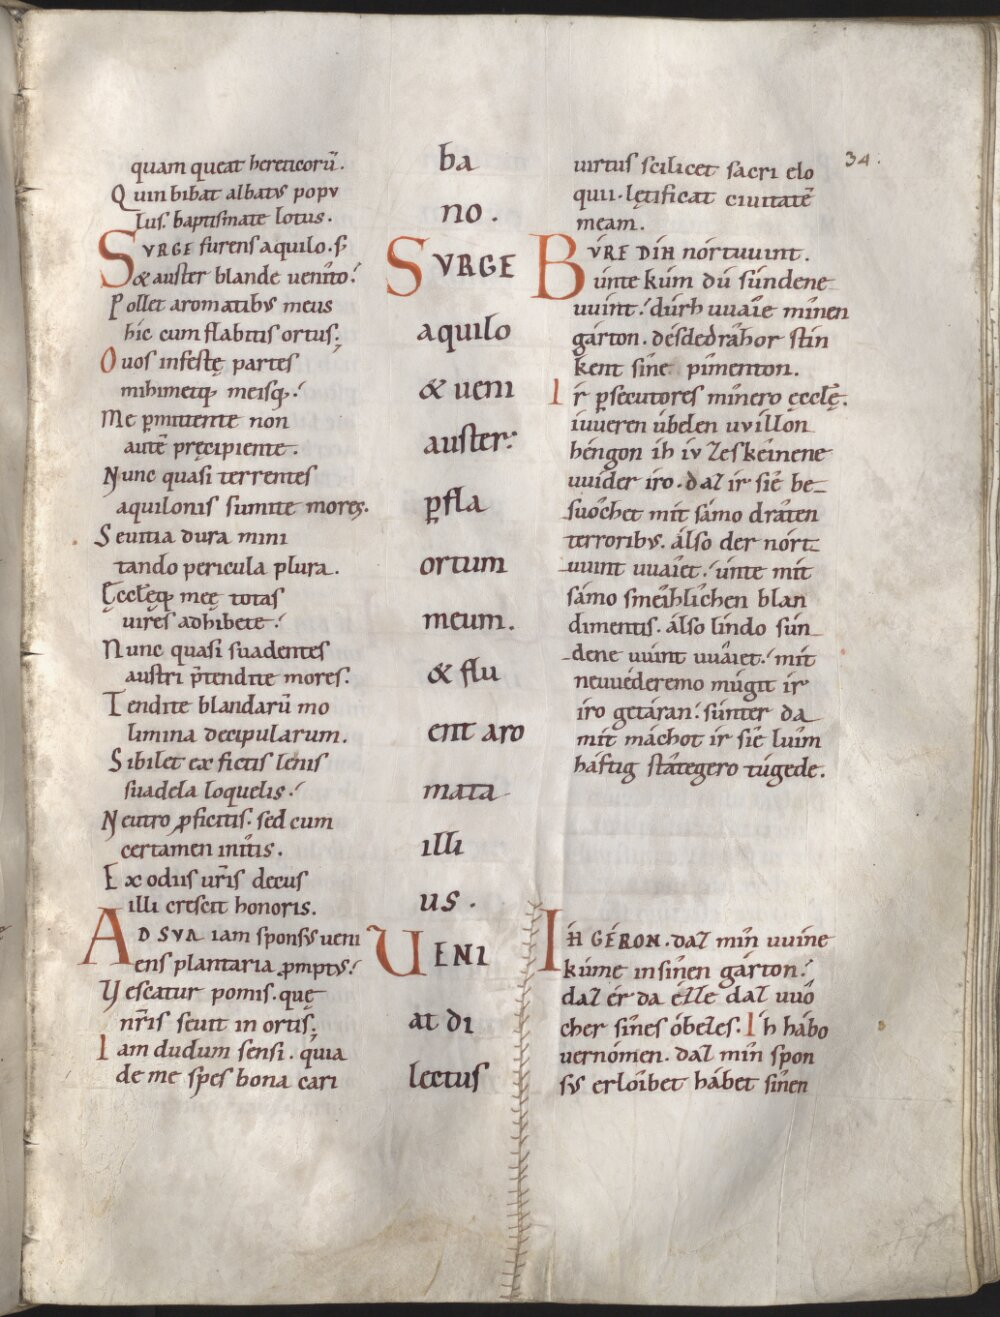 34.
quam queat hereticorū.
Quin bibat albatus popu
lus. baptismate lotus.
SVRGE furens aquilo. s;
& auster blande uenito.
Pollet aromatibus meus
hic cum flabitis ortus;
O uos infestę partes
mihimetq; meisq;
Me pmittente non
autē pręcipiente.
Nunc quasi terrentes
aquilonis sumite mores.
Seuitia dura mini
tando pericula plura.
Ęcclęq; meę totas
uires adhibete.
Nunc quasi suadentes
austri p̄tendite mores.
Tendite blandarū mo
limina decipularum.
Sibilet ex fictis lenis
suadela loquelis.
Neutro proficitis. sed cum
certamen initis.
Ex odiis ur̄is decus
illi crescit honoris.
AD SVA iam sponsus ueni
ens plantaria promptus.
Vescatur pomis. quę
nr̄is seuit in ortis;
Iam dudum sensi. quia
de me spes bona cari
ba
no.
SVRGE
aquilo
& ueni
auster.
pfla
ortum
meum.
& flu
ent aro
mata
illi
us.
UENI
at di
lectus
uirtus scilicet sacri elo
quii. lętificat ciuitatē
meam.
BVRE DIH nórtuuint.
únte kúm dú súndene
uuint. dúrh uuáie mînen
gárton. dés dedrâhor stin
kent sîne pîmenton.
Ir psecutores mînero ęcclę.
iuueren úbelen uvillon
héngon ih iv zeskéinene
uuíder íro. daz ir sie be
suôchet mit sámo drâten
terroribus. álso der nórt
uuint uuáiet. únte mít
sámo smeíhlîchen blan
dimentis. álso líndo sún
dene uuint uuáiet. mit
neuuéderemo múgit ír
íro getáran. súnter da
mit máchot ír sie luîm
háftig státegero túgede.
IH GÉRON. daz mîn uuíne
kúme in sînen gárton.
daz ér da ézze daz uuô
cher sînes óbezes. Ih hábo
uernómen. daz mîn spon
sus erloîbet hábet sînen